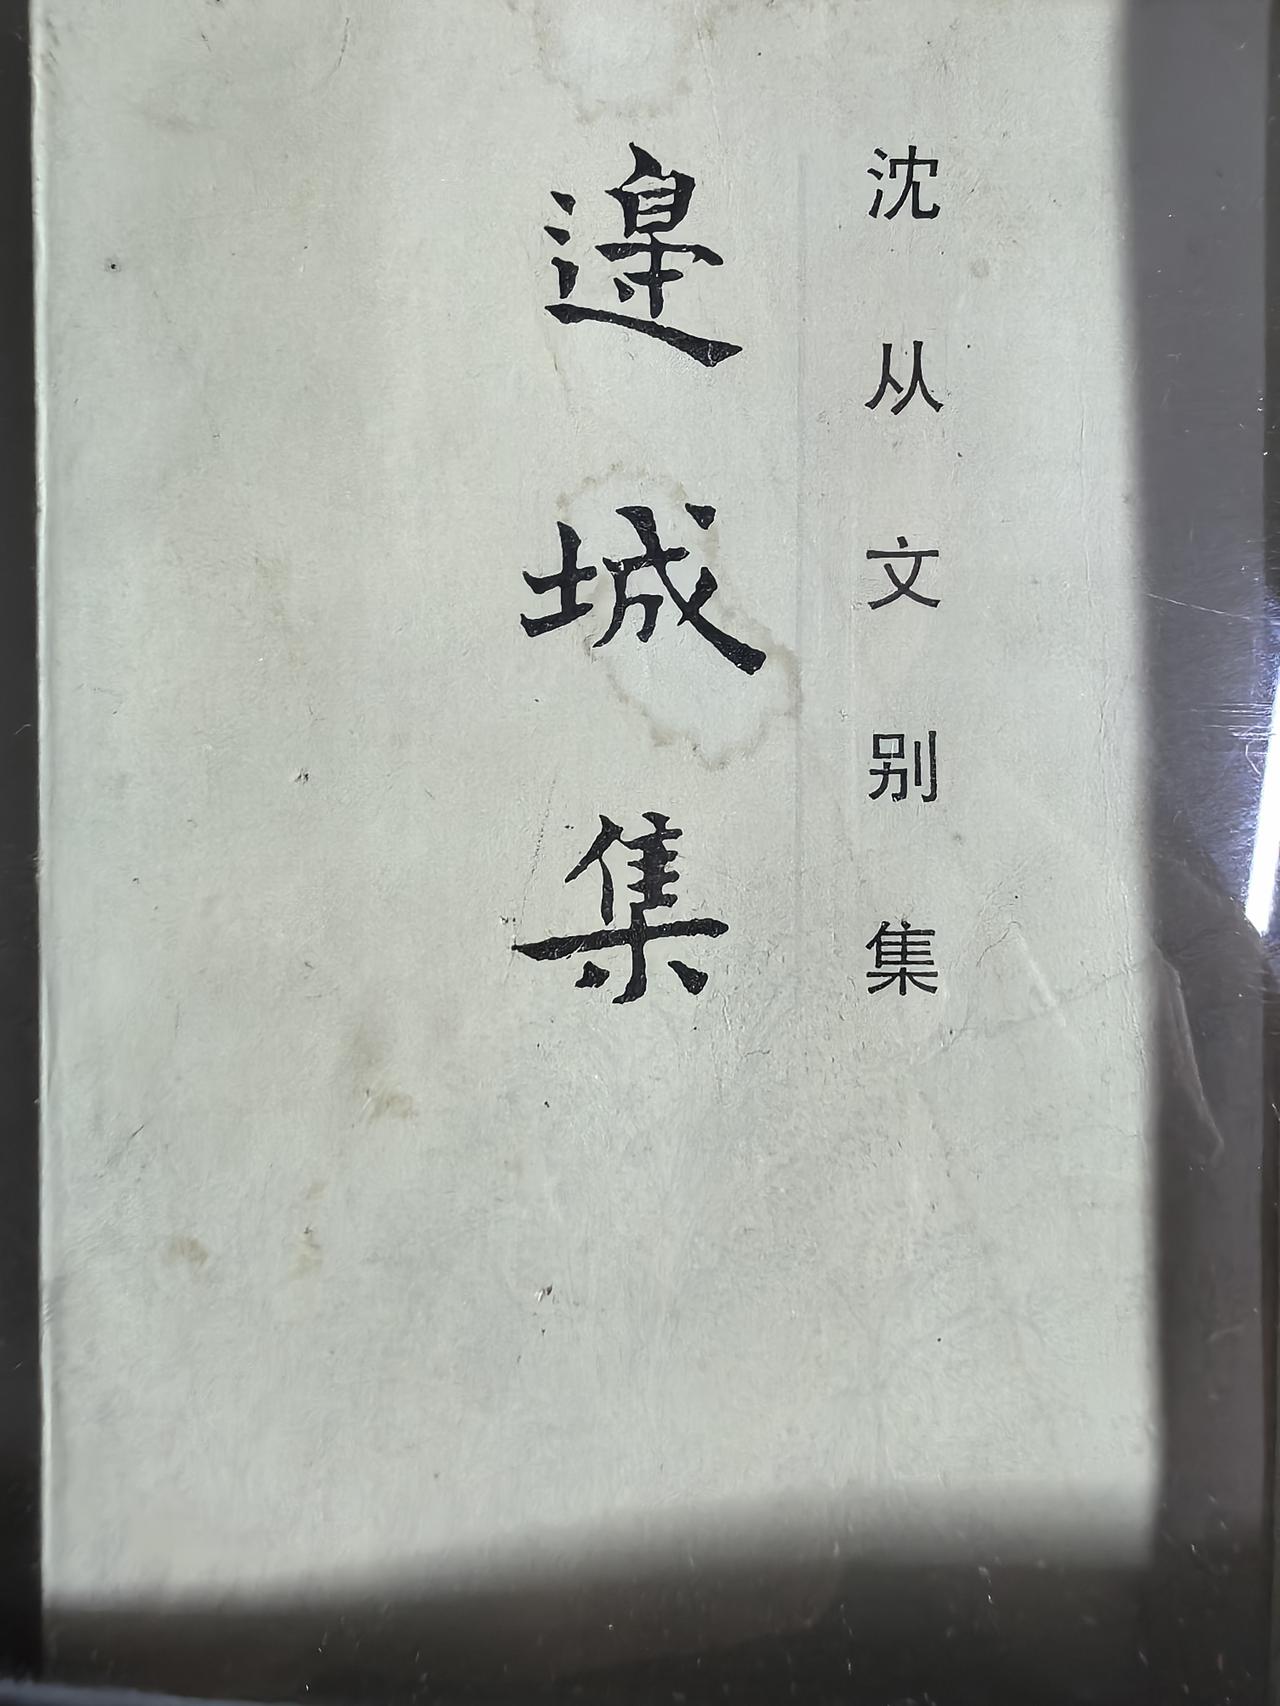 沈从文别集
邊城集